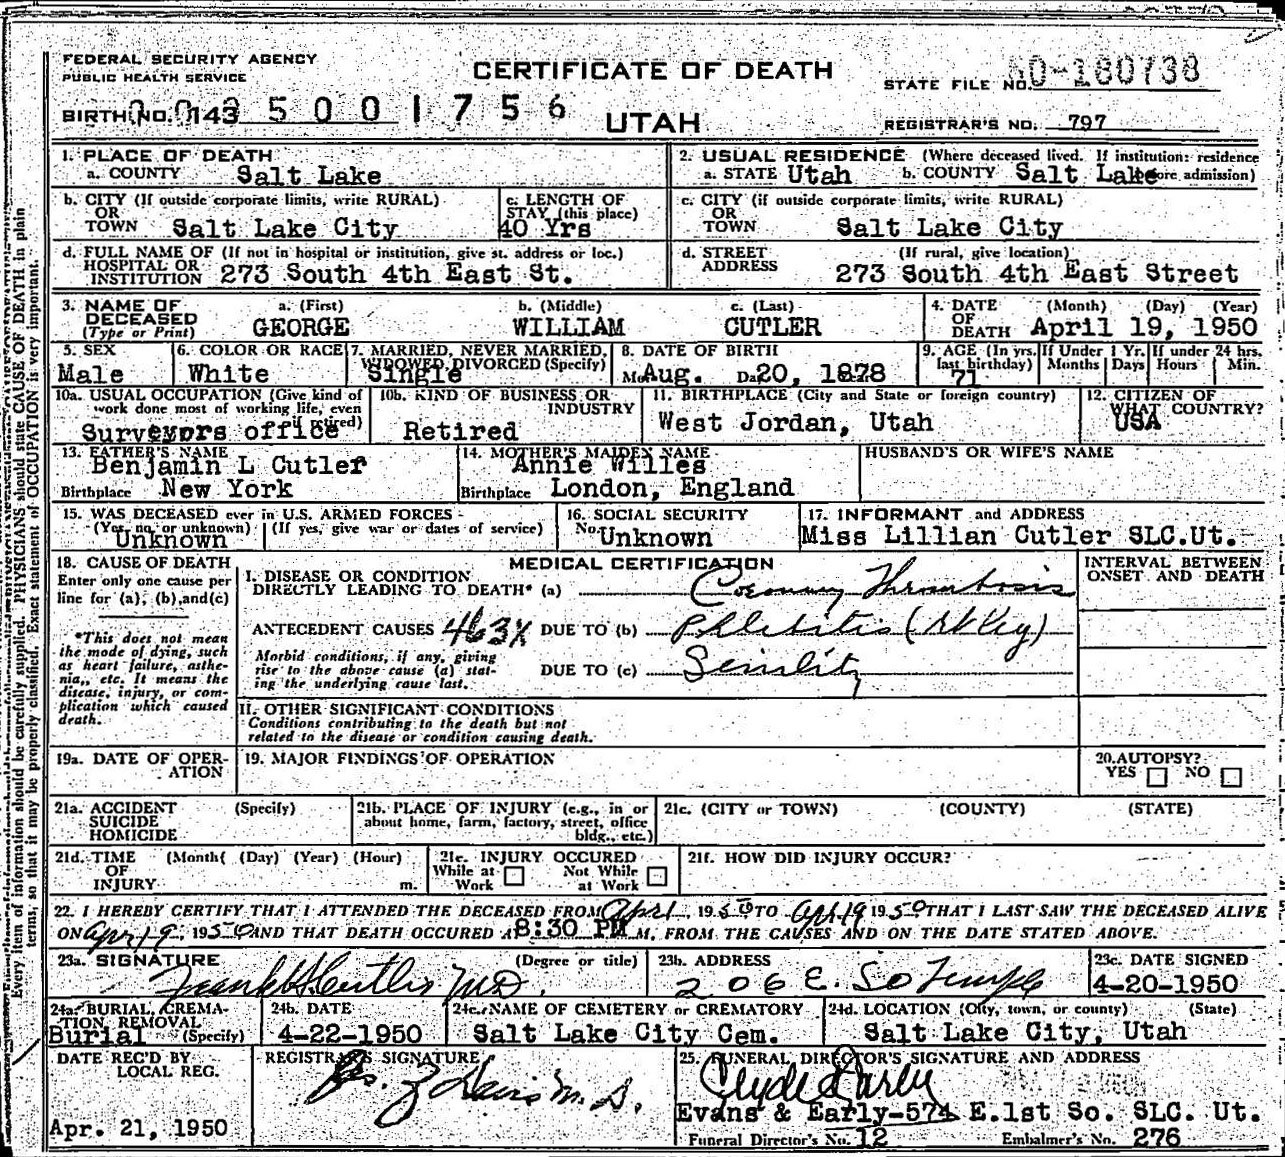 FEDERAL SECURITY AGENCY
PUBLIC HEALTH SERVICE
CERTIFICATE OF DEATH
UTAH
STATE FILE NO. 180738
BIRTH NO. 143 5 0 0 1 7 5 6
REGISTRAR'S NO. 797
1. PLACE OF DEATH
a. COUNTY Salt Lake
2. USUAL RESIDENCE (Where deceased lived. If institution: residence before admission)
a. STATE Utah b. COUNTY Salt Lake
b. CITY (If outside corporate limits, write RURAL)
OR
TOWN Salt Lake City
c. LENGTH OF
STAY (this place)
40 Yrs
c. CITY (if outside corporate limits, write RURAL)
OR
TOWN Salt Lake City
d. FULL NAME OF (If not in hospital or institution, give st. address or loc.)
HOSPITAL OR
INSTITUTION 273 South 4th East St.
d. STREET (If rural, give location)
ADDRESS 273 South 4th East Street
3. NAME OF
DECEASED
(Type or Print)
a. (First) b. (Middle) c. (Last)
GEORGE WILLIAM CUTLER
4. DATE (Month) (Day) (Year)
OF
DEATH April 19, 1950
5. SEX
Male
6. COLOR OR RACE
White
7. MARRIED, NEVER MARRIED,
WIDOWED, DIVORCED (Specify)
Single
8. DATE OF BIRTH
Aug. 20, 1878
9. AGE (In yrs.
last birthday)
71
If Under 1 Yr.
Months Days
If under 24 hrs.
Hours Min.
10a. USUAL OCCUPATION (Give kind of
work done most of working life, even
if retired)
Surveyors office
10b. KIND OF BUSINESS OR
INDUSTRY
Retired
11. BIRTHPLACE (City and State or foreign country)
West Jordan, Utah
12. CITIZEN OF
WHAT COUNTRY?
USA
13. FATHER'S NAME
Benjamin L Cutler
Birthplace New York
14. MOTHER'S MAIDEN NAME
Annie Willes
Birthplace London, England
HUSBAND'S OR WIFE'S NAME
15. WAS DECEASED ever in U.S. ARMED FORCES
(Yes, no, or unknown) (If yes, give war or dates of service)
Unknown
16. SOCIAL SECURITY
No. Unknown
17. INFORMANT and ADDRESS
Miss Lillian Cutler SLC.Ut.
18. CAUSE OF DEATH
Enter only one cause per
line for (a), (b),and(c)
*This does not mean
the mode of dying, such
as heart failure, asthe-
nia, etc. It means the
disease, injury, or com-
plication which caused
death.
MEDICAL CERTIFICATION
I. DISEASE OR CONDITION
DIRECTLY LEADING TO DEATH* (a) Coronary Thrombosis
ANTECEDENT CAUSES 463X DUE TO (b) Phlebitis (Rt Leg)
Morbid conditions, if any, giving
rise to the above cause (a) stat-
ing the underlying cause last.
DUE TO (c) Senility
INTERVAL BETWEEN
ONSET AND DEATH
II. OTHER SIGNIFICANT CONDITIONS
Conditions contributing to the death but not
related to the disease or condition causing death.
19a. DATE OF OPER-
ATION
19. MAJOR FINDINGS OF OPERATION
20. AUTOPSY?
YES NO
21a. ACCIDENT (Specify)
SUICIDE
HOMICIDE
21b. PLACE OF INJURY (e.g., in or
about home, farm, factory, street, office
bldg., etc.)
21c. (CITY or TOWN) (COUNTY) (STATE)
21d. TIME (Month) (Day) (Year) (Hour)
OF
INJURY m.
21e. INJURY OCCURED
While at Work Not While at Work
21f. HOW DID INJURY OCCUR?
22. I HEREBY CERTIFY THAT I ATTENDED THE DECEASED FROM April, 1950 TO Apr 19 1950 THAT I LAST SAW THE DECEASED ALIVE
ON Apr 19, 1950 AND THAT DEATH OCCURED AT 8:30 PM M. FROM THE CAUSES AND ON THE DATE STATED ABOVE.
23a. SIGNATURE (Degree or title)
Frank H Cutler M.D.
23b. ADDRESS
206 E. So Temple
23c. DATE SIGNED
4-20-1950
24a. BURIAL, CREMA-
TION, REMOVAL
Burial (Specify)
24b. DATE
4-22-1950
24c. NAME OF CEMETERY or CREMATORY
Salt Lake City Cem.
24d. LOCATION (City, town, or county) (State)
Salt Lake City, Utah
DATE REC'D BY
LOCAL REG.
Apr. 21, 1950
REGISTRAR'S SIGNATURE
M.D.
25. FUNERAL DIRECTOR'S SIGNATURE AND ADDRESS
Clyde Early
Evans & Early-574 E.1st So. SLC. Ut.
Funeral Director's No. 12 Embalmer's No. 276
Every item of information should be carefully supplied. PHYSICIANS should state CAUSE OF DEATH in plain
terms, so that it may be properly classified. Exact statement of OCCUPATION is very important.